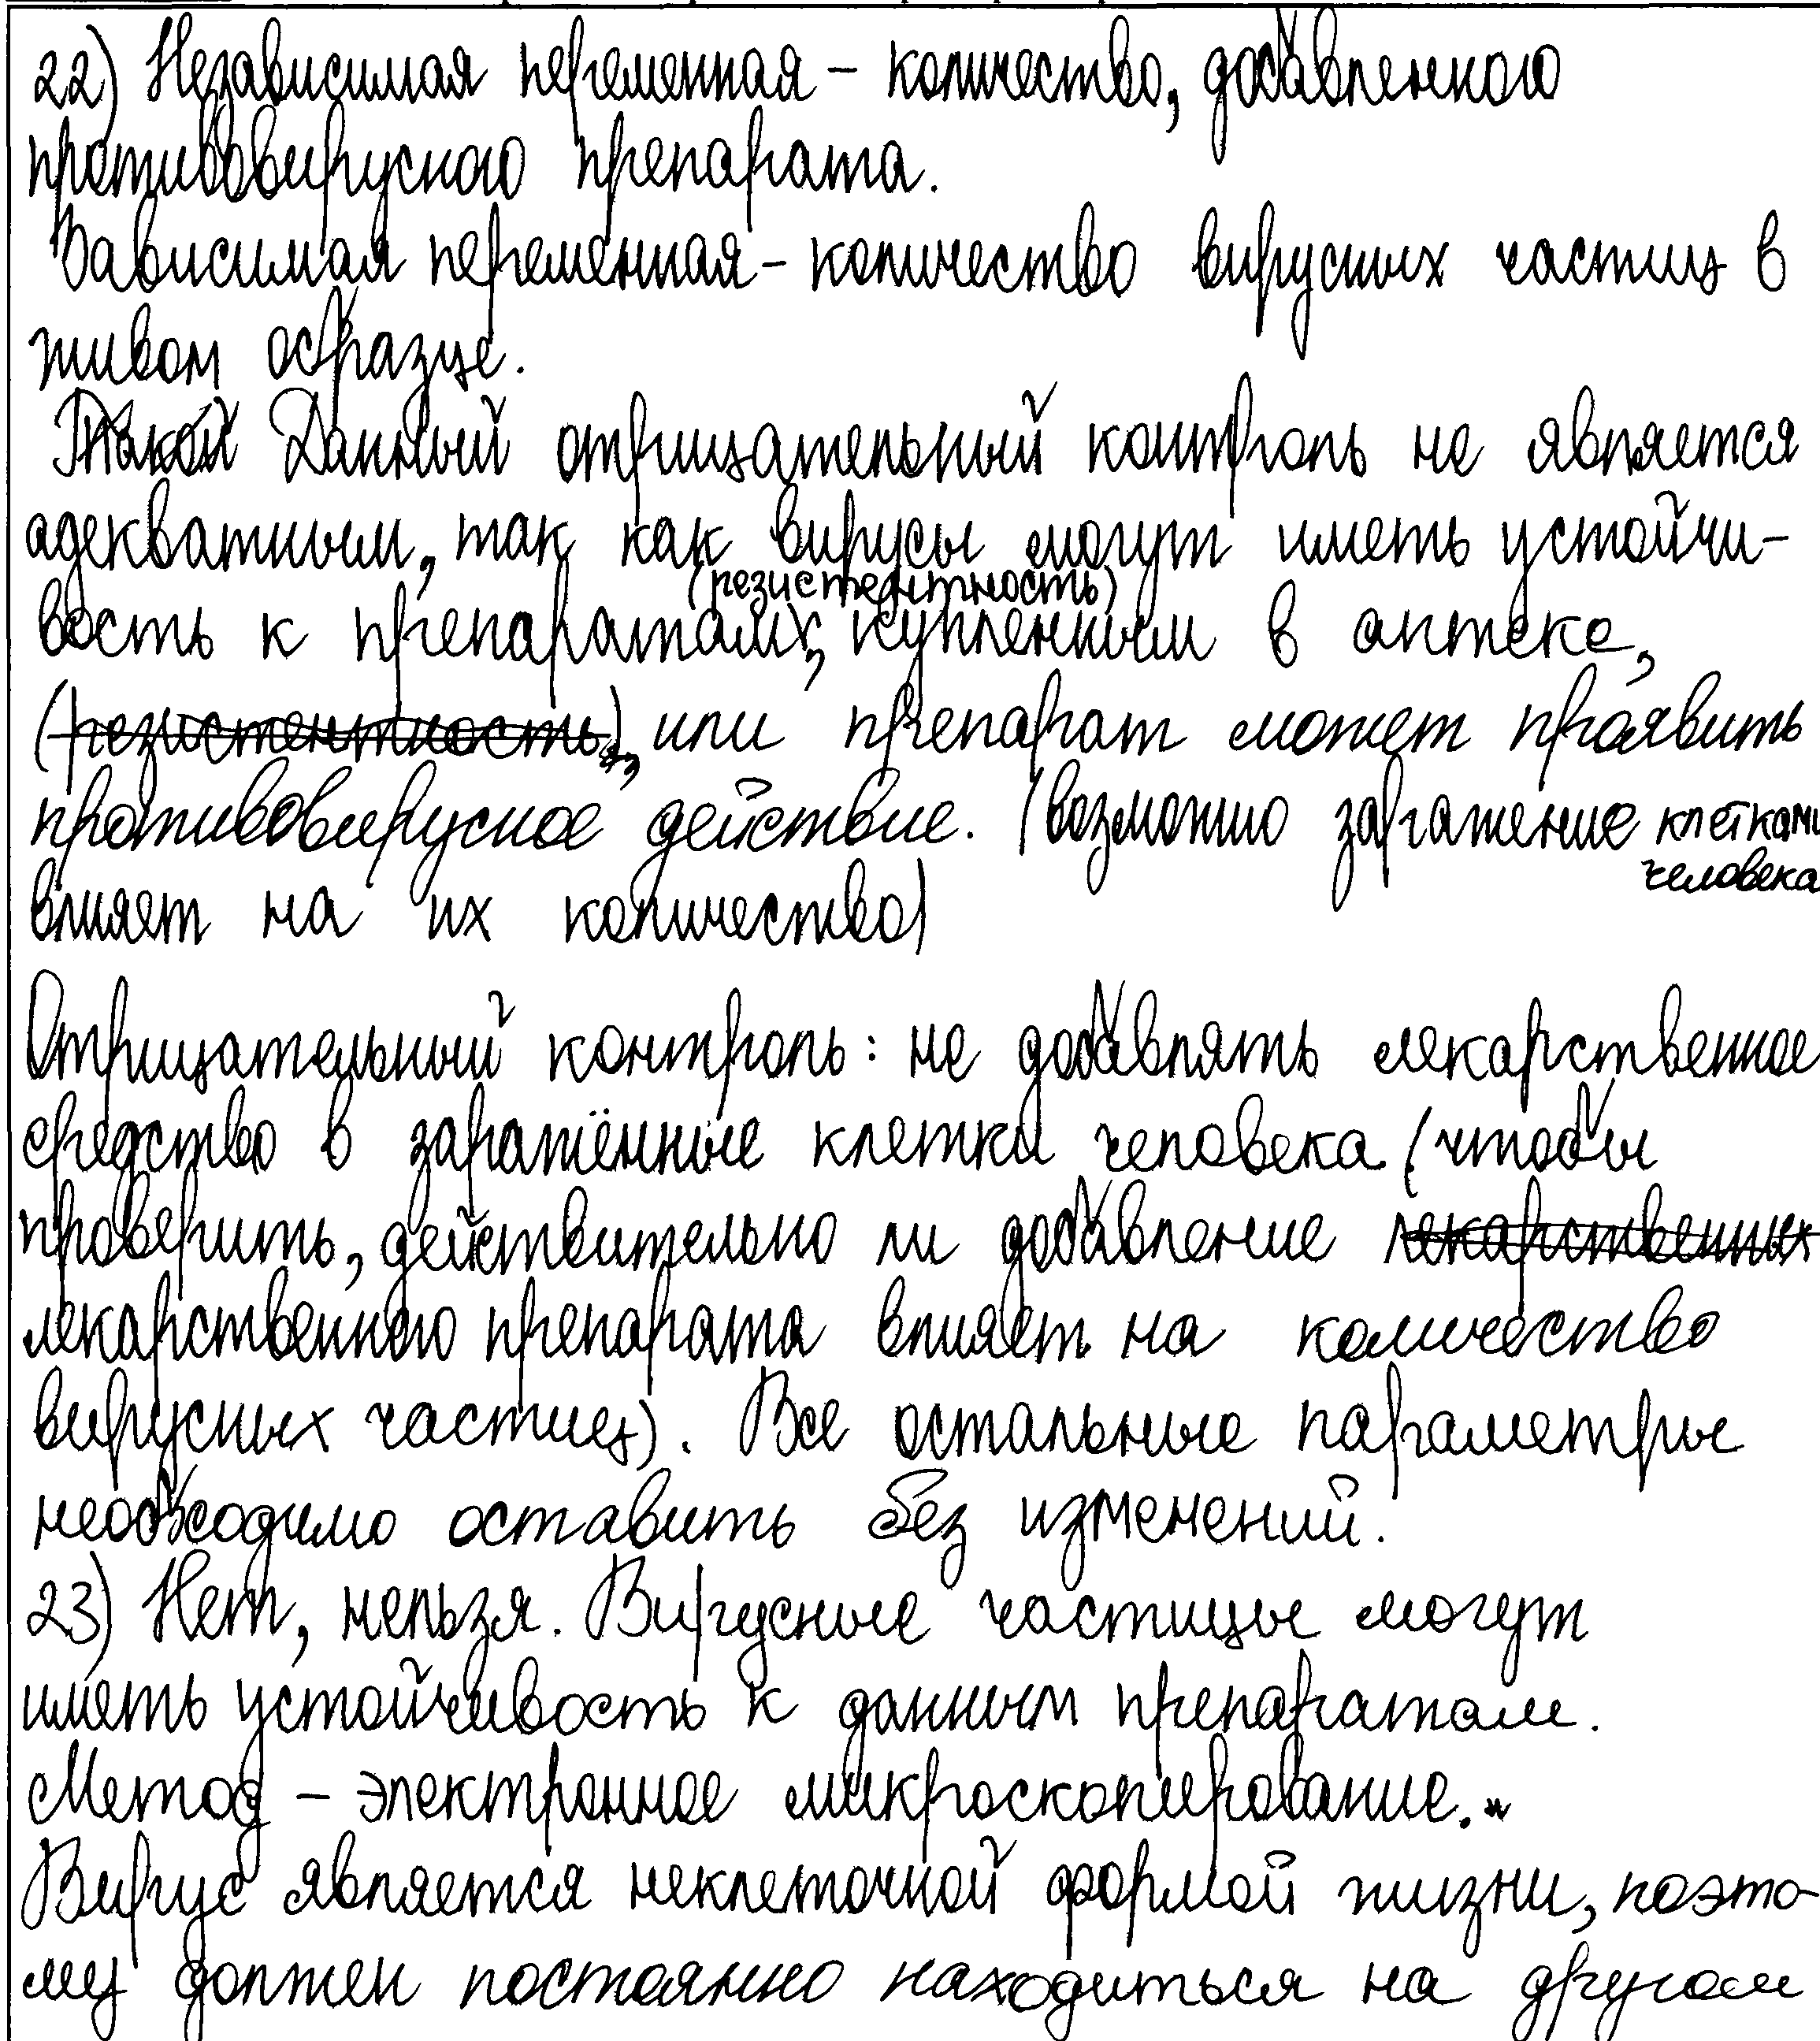 22) Независимая переменная – количество, добавленного
противовирусного препарата.
Зависимая переменная – количество вирусных частиц в
живом образце.
Такой Данный отрицательный контроль не является
адекватным, так как вирусы могут иметь устойчи-
(резистентность)
вость к препаратам, купленным в аптеке,
(резистентность), или препарат может проявить
противовирусное действие. (возможно заражение клетками
человека
влияет на их количество)
Отрицательный контроль: не добавлять лекарственное
средство в заражённые клетки человека (чтобы
проверить, действительно ли добавление лекарственных
лекарственного препарата влияет на количество
вирусных частиц). Все остальные параметры
необходимо оставить без изменений.
23) Нет, нельзя. Вирусные частицы могут
иметь устойчивость к данным препаратам.
Метод – электронное микроскопирование.
Вирус является неклеточной формой жизни, поэто-
му должен постоянно находиться на другом